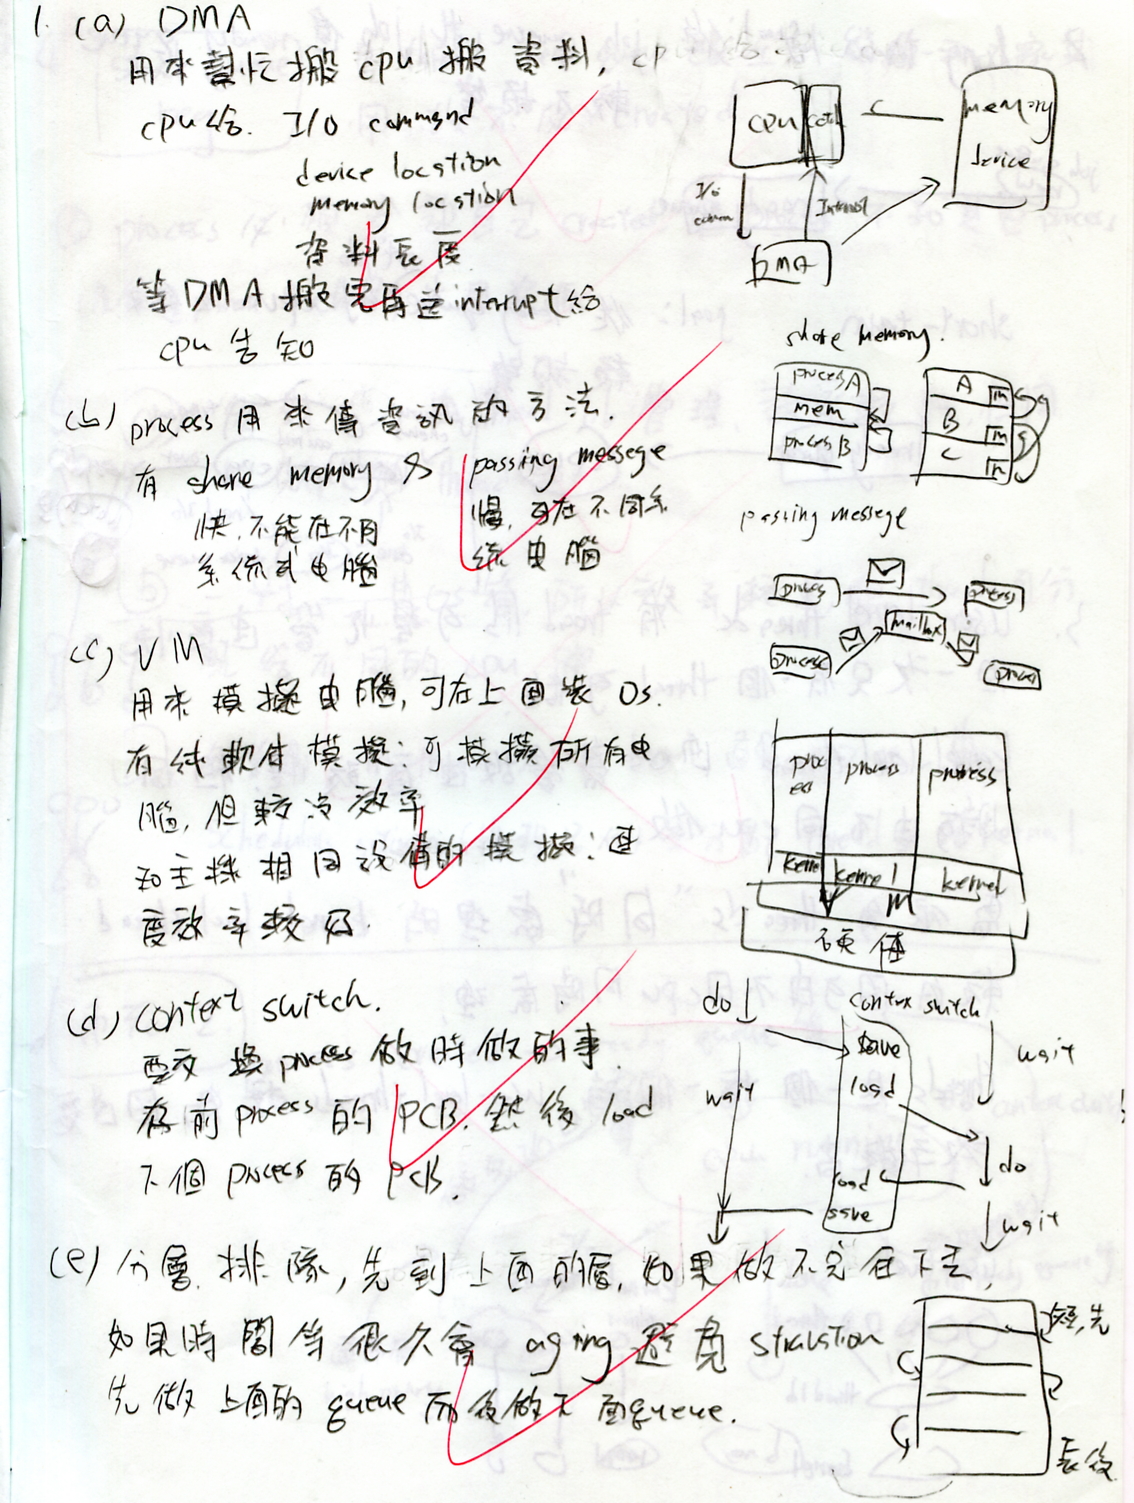 1. (a) DMA
用來幫忙搬 cpu 搬 資料,
cpu給. I/O command
device location
memory location
資料長度
等 DMA 搬完再送 interrupt 給
cpu 告知
CPU
memory
device
I/O
DMA
(b) process 用來傳資訊的方法.
有 share memory &
快, 不能在不同
系統或電腦
passing messege
慢, 可在不同系
統電腦
share memory.
process A
mem
process B
A m
B m
C m
passing messege
process
process
process
mailbox
process
(c) VM
用來模擬電腦, 可在上面裝 OS.
有純軟体模擬: 可模擬所有電
腦, 但較沒效率
和主機相同設備的模擬: 速
度效率較好.
process
process
process
kernel
kernel
kernel
硬体
(d) context switch.
要交換process 做時做的事.
存前 process 的 PCB. 然後 load
下個 process 的 PCB.
do
wait
context switch
save
load
load
save
wait
do
wait
(e) 分層排隊, 先到上面的層, 如果做不完在下去,
如果時間等很久會 aging 避免 stralstion
先做上面的 queue 而後做下面queue.
短, 先
長後